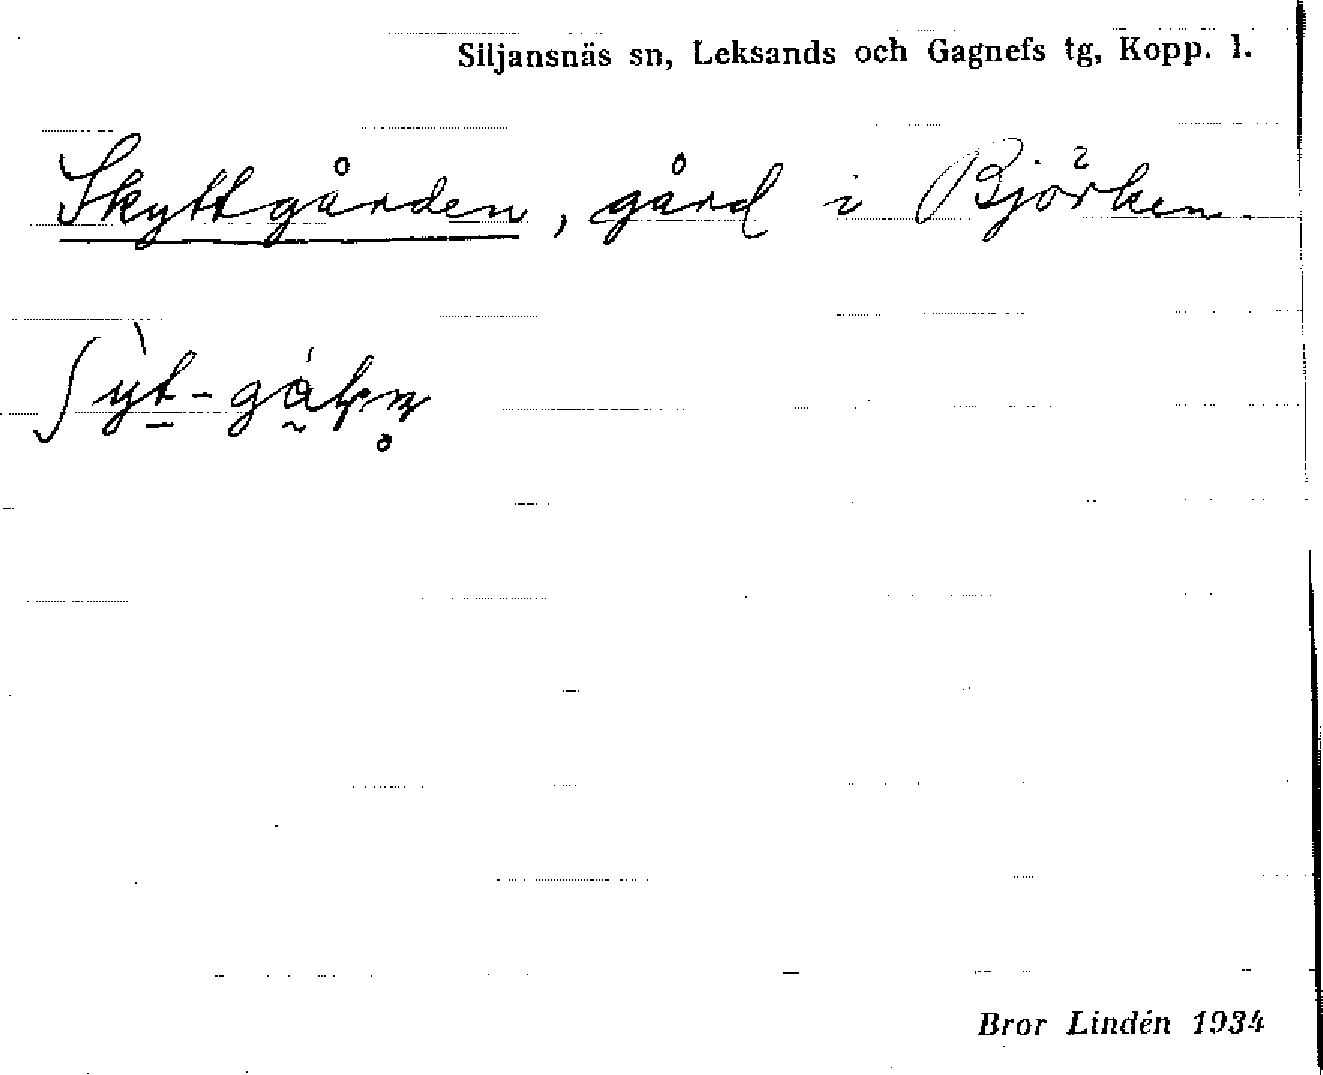 Siljansnäs sn, Leksands och Gagnefs tg, Kopp. l.
Skyttgården, gård i Björken.
Bror Lindén 1934